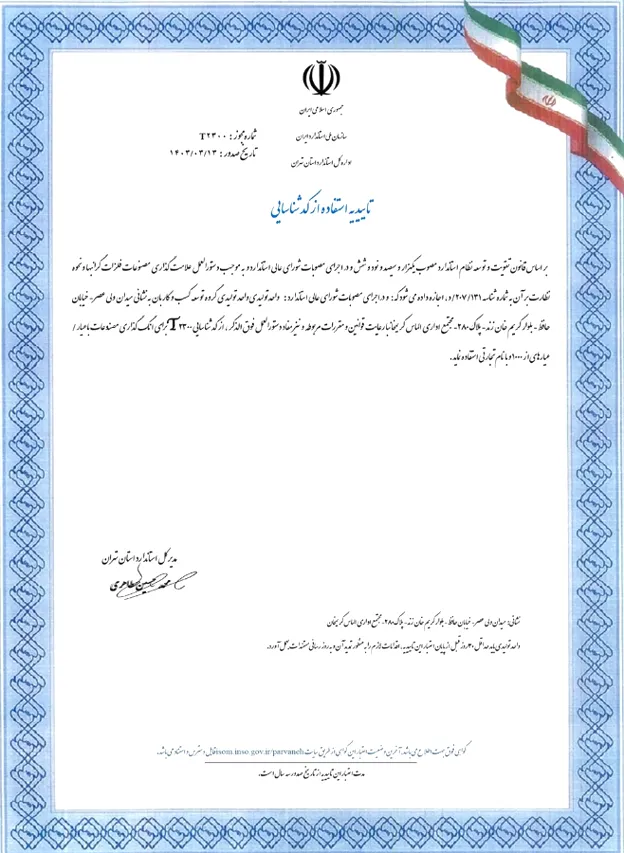 جمهوری اسلامی ایران
سازمان ملی استاندارد ایران
اداره کل استاندارد استان تهران
شماره مجوز : T۲۳۰۰
تاریخ صدور : ۱۴۰۳/۰۳/۱۳
تاییدیه استفاده از کد شناسایی
بر اساس قانون تقویت و توسعه نظام استاندارد مصوب یکهزار و سیصد و نود و شش و در اجرای مصوبات شورای عالی استاندارد و به موجب دستورالعمل علامت گذاری مصنوعات فلزات گرانبها و نحوه
نظارت بر آن به شماره شناسه د/۲۰۷/۱۳۱ ، اجازه داده می شود که : و در اجرای مصوبات شورای عالی استاندارد : واحد تولیدی واحد تولیدی گروه توسعه کسب و کار بان به نشانی میدان ولی عصر- خیابان
حافظ - بلوار کریم خان زند - پلاک ۲۸۰- مجتمع اداری الماس کریمخان با رعایت قوانین و مقررات مربوطه و نیز مفاد دستورالعمل فوق الذکر ، از کد شناسایی T۲۳۰۰ برای انگ گذاری مصنوعات با عیار /
عیارهای از ۱۰۰۰ و با نام تجارتی استفاده نماید.
مدیر کل استاندارد استان تهران
نشانی: میدان ولی عصر- خیابان حافظ - بلوار کریم خان زند - پلاک ۲۸۰- مجتمع اداری الماس کریمخان
واحد تولیدی باید حداقل ۳۰ روز قبل از پایان اعتبار این تاییدیه، اقدامات لازم را به منظور تمدید آن و به روز رسانی مستندات بعمل آورد.
گواهی فوق جهت اطلاع می باشد. آخرین وضعیت اعتبار این گواهی از طریق سایت isom.inso.gov.ir/parvaneh قابل دسترس و استناد می باشد.
مدت اعتبار این تاییدیه از تاریخ صدور سه سال است.